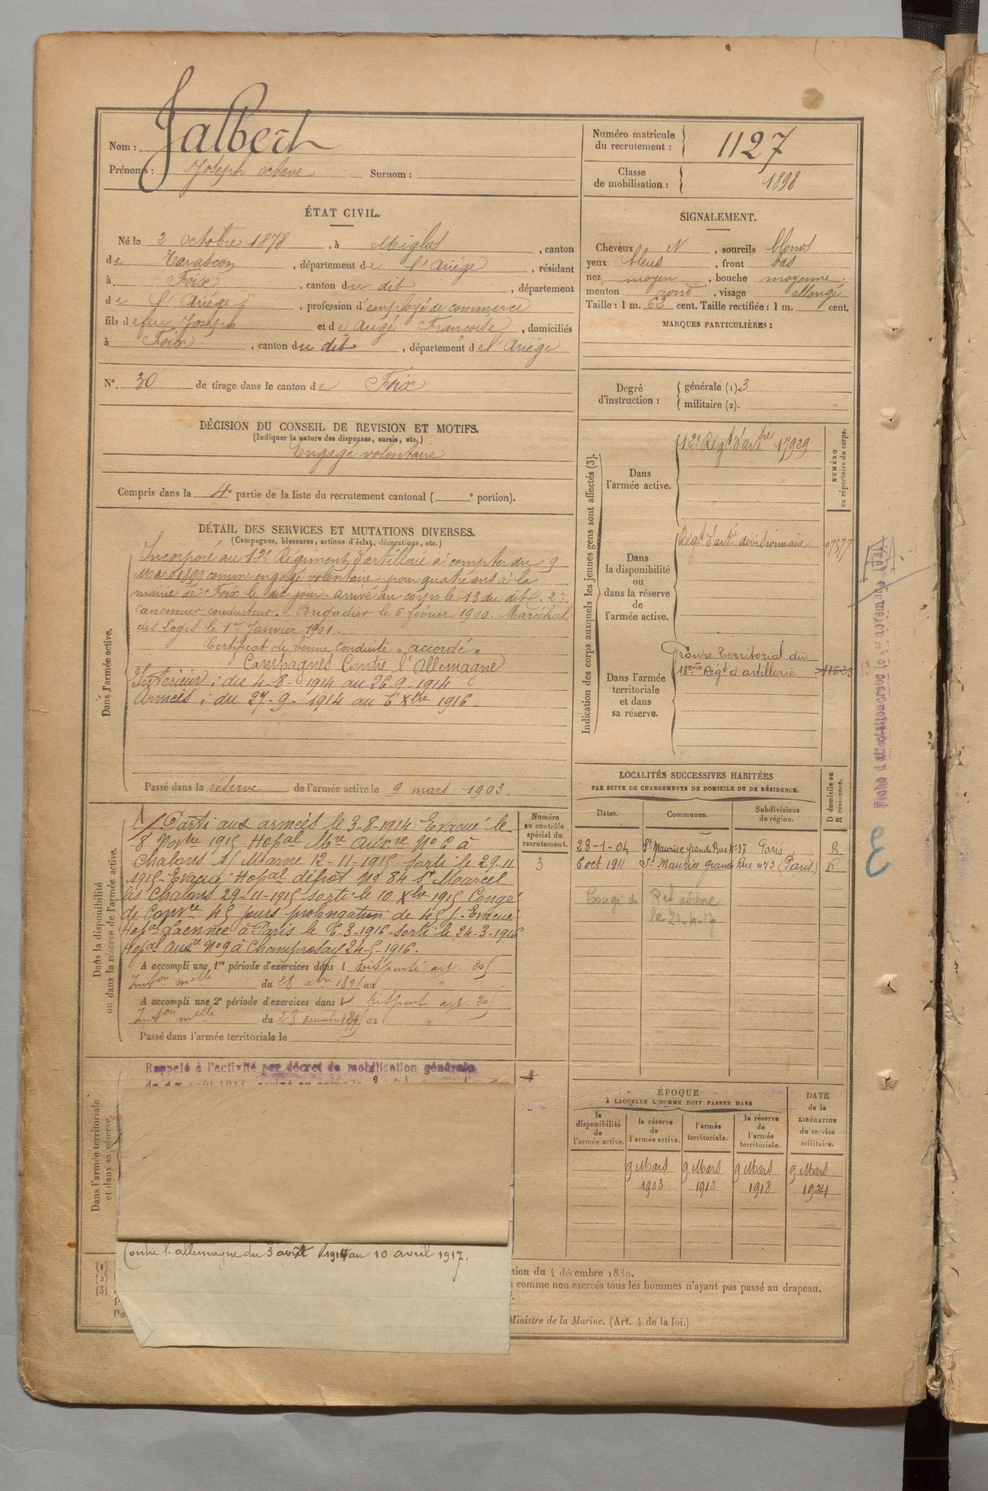 Nom : Jalbert
Prénoms : Joseph octave Surnom :
Numéro matricule du recrutement : 1127
Classe de mobilisation : 1898
ÉTAT CIVIL.
Né le 3 octobre 1878, à Miglos, canton
de Tarascon, département de l'Ariège, résidant
à Foix, canton du dit, département
de l'Ariège, profession d'employé de commerce
fils de feu Joseph et de Augé Francoise, domiciliés
à Foix, canton du dit, département de l'Ariège
N° 30 de tirage dans le canton de Foix
DÉCISION DU CONSEIL DE REVISION ET MOTIFS.
(Indiquer la nature des dispenses, sursis, etc.)
Engagé volontaire
Compris dans la 4e partie de la liste du recrutement cantonal ( e portion).
SIGNALEMENT.
Cheveux N, sourcils blonds
yeux bleus, front bas
nez moyen, bouche moyenne
menton rond, visage allongé
Taille : 1 m. 63 cent. Taille rectifiée : 1 m. cent.
MARQUES PARTICULIÈRES :
Degré d'instruction : générale (1) 3
militaire (2).
DÉTAIL DES SERVICES ET MUTATIONS DIVERSES.
(Campagnes, blessures, actions d'éclat, décorations, etc.)
Dans l'armée active.
Incorporé au 12e Régiment d'artillerie à compter du 9
Mars comme engagé volontaire pour quatre ans à la
mairie de Foix le dit jour. arrivé au corps le 13 du dit. 2e
canonnier conducteur. Brigadier le 6 février 1900. Maréchal
des Logis le 1er Janvier 1901.
Certificat de bonne conduite "accordé"
Campagnes Contre l'Allemagne
Intérieur : du 4-8-1914 au 26-9-1914
Armées : du 27-9-1914 au 6 Xbre 1916.
Passé dans la réserve de l'armée active le 9 mars 1903.
Indication des corps auxquels les jeunes gens sont affectés (3).
NUMÉRO au répertoire du corps.
Dans l'armée active.
12e Régt d'artie 17929
Dans la disponibilité ou dans la réserve de l'armée active.
Régt d'artie divisionnaire
Dans l'armée territoriale et dans sa réserve.
Groupe Territorial du
18ème Régt d'artillerie
Dans la disponibilité ou dans la réserve de l'armée active.
Numéro au contrôle spécial du recrutement.
3
Parti aux armées le 3-8-1914 Evacué le
8 Novbre 1915 Hopal Mre Auxre No 6 à
Chalons s/ Marne 12-11-1915 Sorti le 29-11
1915 Evacué Hopal dépôt No 84 St Marcel
les Chalons 29-11-1915 Sorti le 10 Xbre 1915 Congé
de Convce 45 jours prolongation de 45 j. Evacué
Hopal Laennec à Paris le 6-3-1916 Sorti le 24-3-1916
Hopal Auxre No 9 à Champrosay 24-5-1916.
A accompli une 1re période d'exercices dans l
A accompli une 2e période d'exercices dans l
Passé dans l'armée territoriale le
LOCALITÉS SUCCESSIVES HABITÉES
PAR SUITE DE CHANGEMENTS DE DOMICILE OU DE RÉSIDENCE.
Dates. Communes. Subdivisions de région. D domicile ou R résidence.
28-1-04 St Maurice grande Rue No 37 Paris R
6 oct 1911 St Maurice grande Rue No 43 (Paris) R
Dans l'armée territoriale et dans sa réserve.
Rappelé à l'activité par décret de mobilisation générale
Contre l'allemagne du 3 août 1914 au 10 avril 1917.
ÉPOQUE
À LAQUELLE L'HOMME DOIT PASSER DANS
la disponibilité de l'armée active. la réserve de l'armée active. l'armée territoriale. la réserve de l'armée territoriale. DATE de la LIBÉRATION du service militaire.
9 Mars 1903 9 Mars 1913 9 Mars 1918 9 Mars 1924
(1)
(2)
(3)
tion du 4 décembre 1889.
comme non exercés tous les hommes n'ayant pas passé au drapeau.
Ministre de la Marine. (Art. 4 de la loi.)